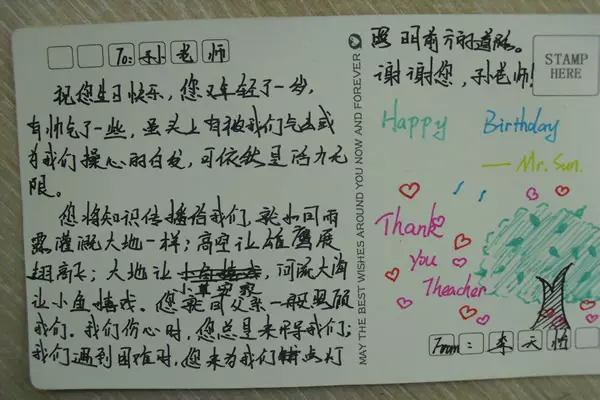 To: 孙老师
祝您生日快乐，您又年轻了一岁，
有帅气了一些，虽头上有被我们气出或
为我们操心的白发，可依然是活力无
限。
您将知识传播给我们，就如同雨
露灌溉大地一样；高空让雄鹰展
翅高飞；大地让小草安家，河流大海
让小鱼嬉戏。您就同父亲一般照顾
我们。我们伤心时，您总是来开导我们；
我们遇到困难时，您来为我们点灯
MAY THE BEST WISHES AROUND YOU NOW AND FOREVER
照明前方的道路。
谢谢您，孙老师！
STAMP
HERE
Happy Birthday
— Mr. Sun.
Thank
you
Theacher
From: 李天怡